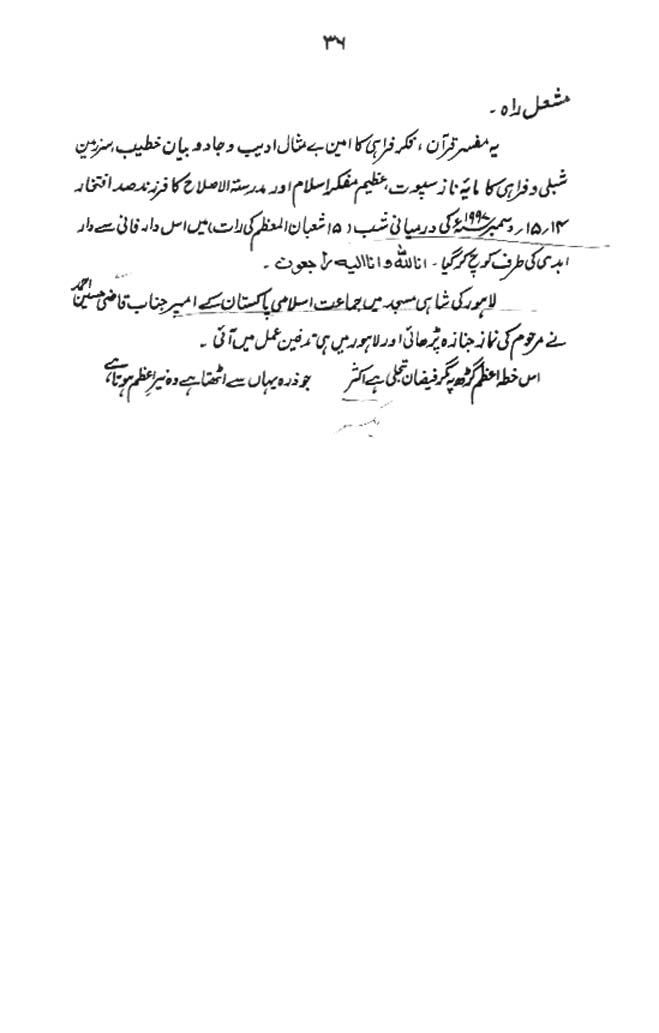 ۳۶
مشعل راہ ۔
یہ مفسر قرآن ، فکر فراہی کا امین بے مثال ادیب و جادو بیان خطیب، سرزمین
شبلی و فراہی کا مایۂ ناز سپوت، عظیم مفکر اسلام اور مدرسۃ الاصلاح کا فرزند صد افتخار
۱۴؍۱۵؍ دسمبر ۱۹۹۷ء کی درمیانی شب (۱۵ شعبان المعظم کی رات) میں اس دار فانی سے دار
ابدی کی طرف کوچ کر گیا ۔ انا للہ و انا الیہ راجعون ۔
لاہور کی شاہی مسجد میں جماعت اسلامی پاکستان کے امیر جناب قاضی حسین احمد
نے مرحوم کی نماز جنازہ پڑھائی اور لاہور میں ہی تدفین عمل میں آئی ۔
اس خطہ اعظم گڑھ پہ مگر فیضان تجلی ہے اکثر جو ذرہ یہاں سے اٹھتا ہے وہ نیر اعظم ہوتا ہے